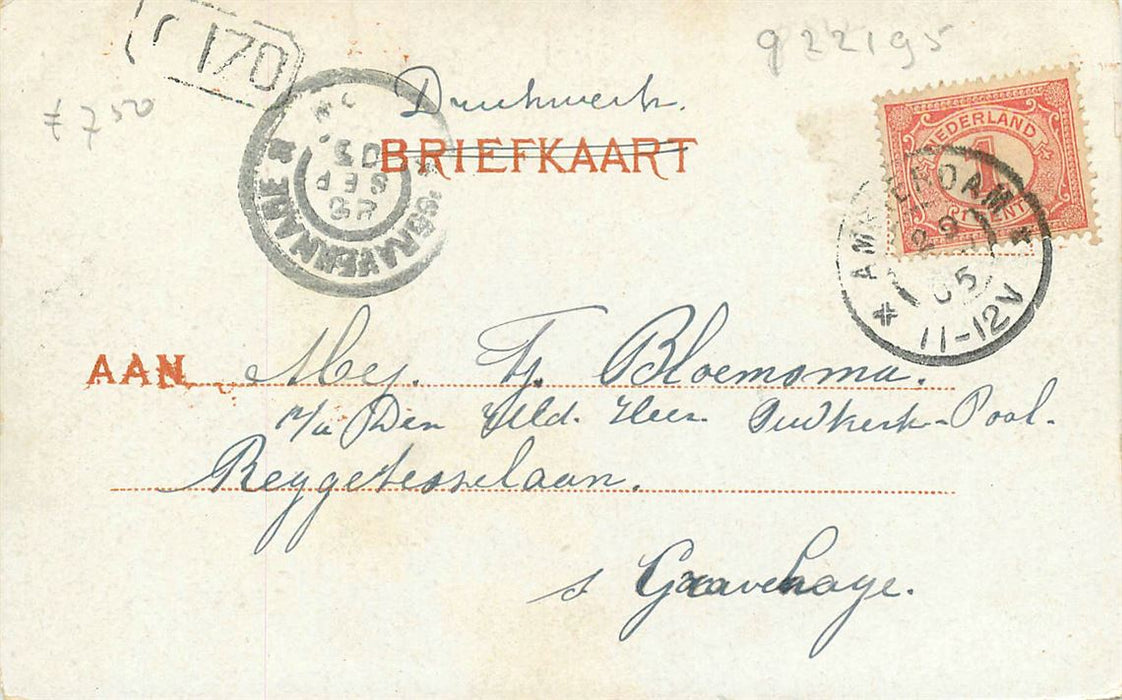 170
922195
f 7 50
Drukwerk.
BRIEFKAART
NEDERLAND
1
CENT
'SGRAVENHAGE
SEP
05
AMSTERDAM
29
05
11-12V
AAN Mej. Tj. Bloemsma.
p/a Den Weld. Heer Oudkerk-Pool.
Reggetesselaan.
s Gravenhage.